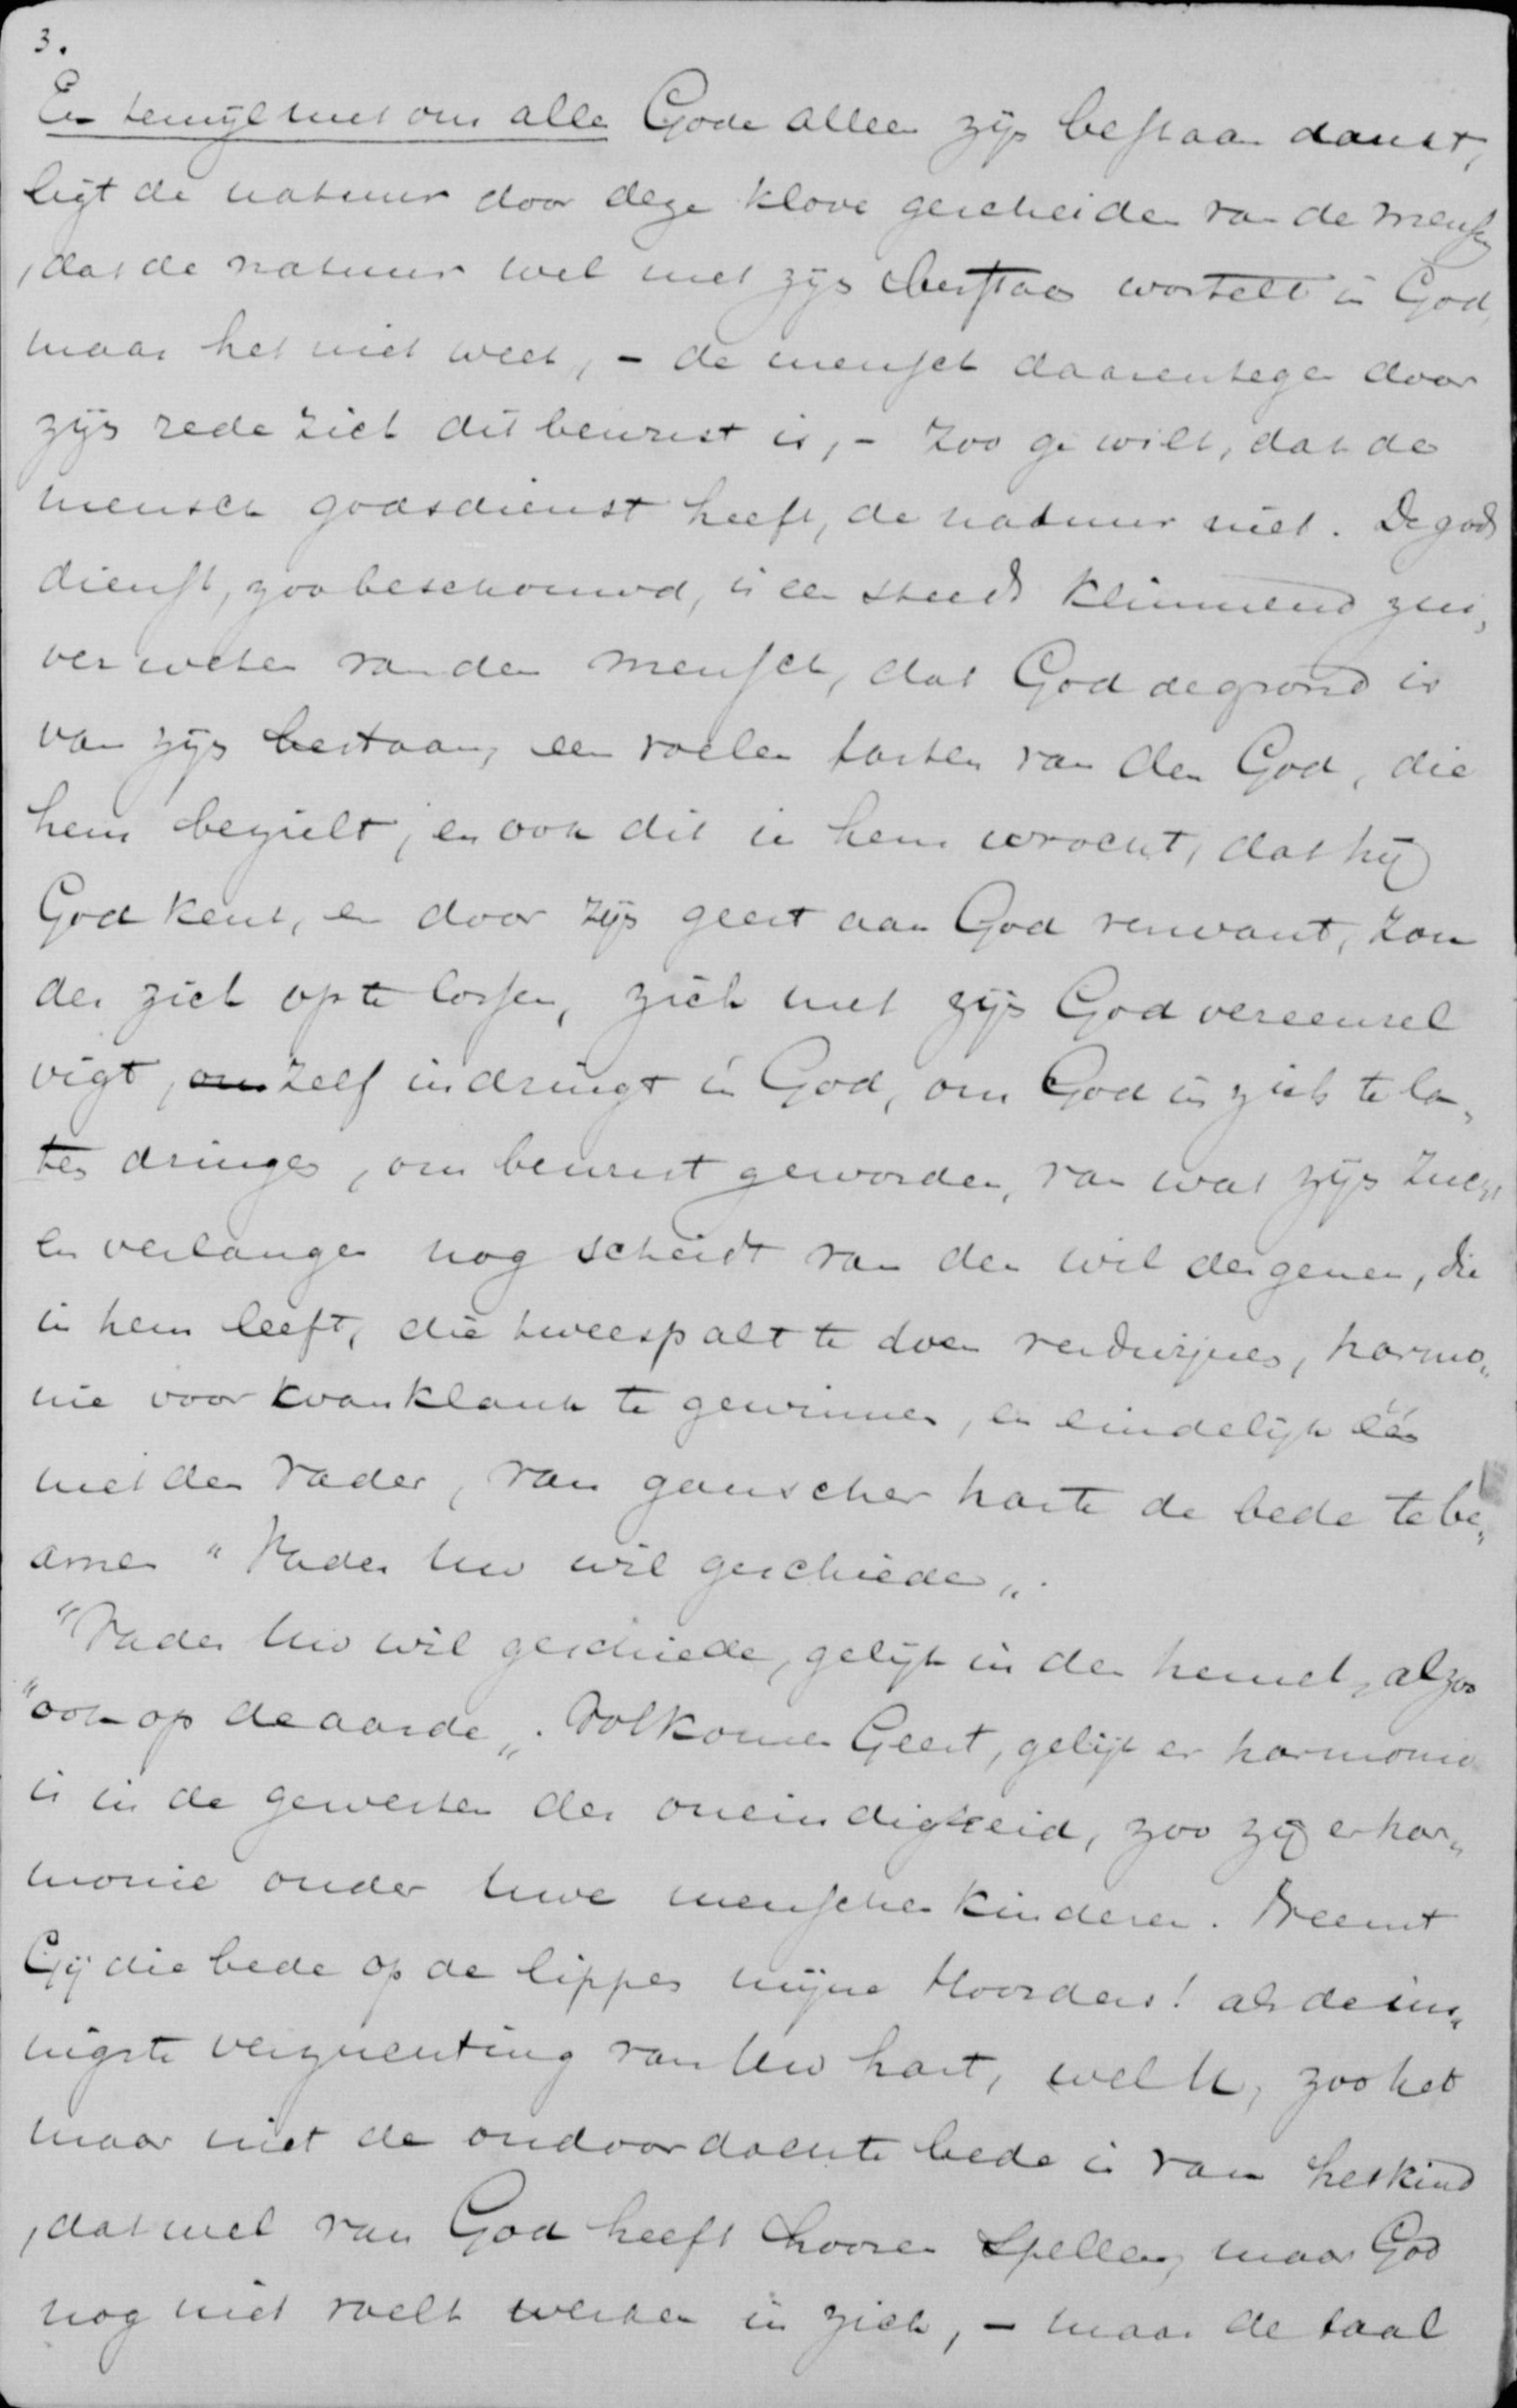 3.
En terwijl met ons alles Gode alleen zijn bestaan dankt,
ligt de natuur door deze klove gescheiden van de mensch
, dat de natuur wel met zijn bestaan wortelt in God,
maar het niet weet, – de mensch daarentegen door
zijn rede zich dit bewust is, – zoo ge wilt, dat de
mensch godsdienst heeft, de natuur niet. De gods
dienst, zoo beschouwd, is een steeds klimmend zui„
ver weten van den mensch, dat God de grond is
van zijn bestaan, een voelen tasten van den God, die
hem bezielt, en ook dit in hem wrocht, dat hij
God kent, en door zijn geest aan God verwant, zon
der zich op te lossen, zich met zijn God vereenzel
vigt, om zelf indringt in God, om God in zich te la„
ten dringen, om bewust geworden, van wat zijn zucht
en verlangen nog scheidt van den wil desgenen, die
in hem leeft, die tweespalt te doen verdwijnen, harmo„
nie voor wanklank te gewinnen, en eindelijk één
met den Vader, van ganscher harte de bede te be„
amen "Vader Uw wil geschiede„.
"Vader Uw wil geschiede, gelijk in den hemel, alzoo
"ook op de aarde„. Volkomen Geest, gelijk er harmonie
is in de gewesten der oneindigheid, zoo zij er har„
monie onder Uwe menschenkinderen. Neemt
Gij die bede op de lippen mijne Hoorders! als de in„
nigste verzuchting van Uw hart, welk, zoo het
maar niet de ondoordachte bede is van het kind
, dat wel van God heeft hooren spellen, maar God
nog niet voelt werken in zich, – maar de taal